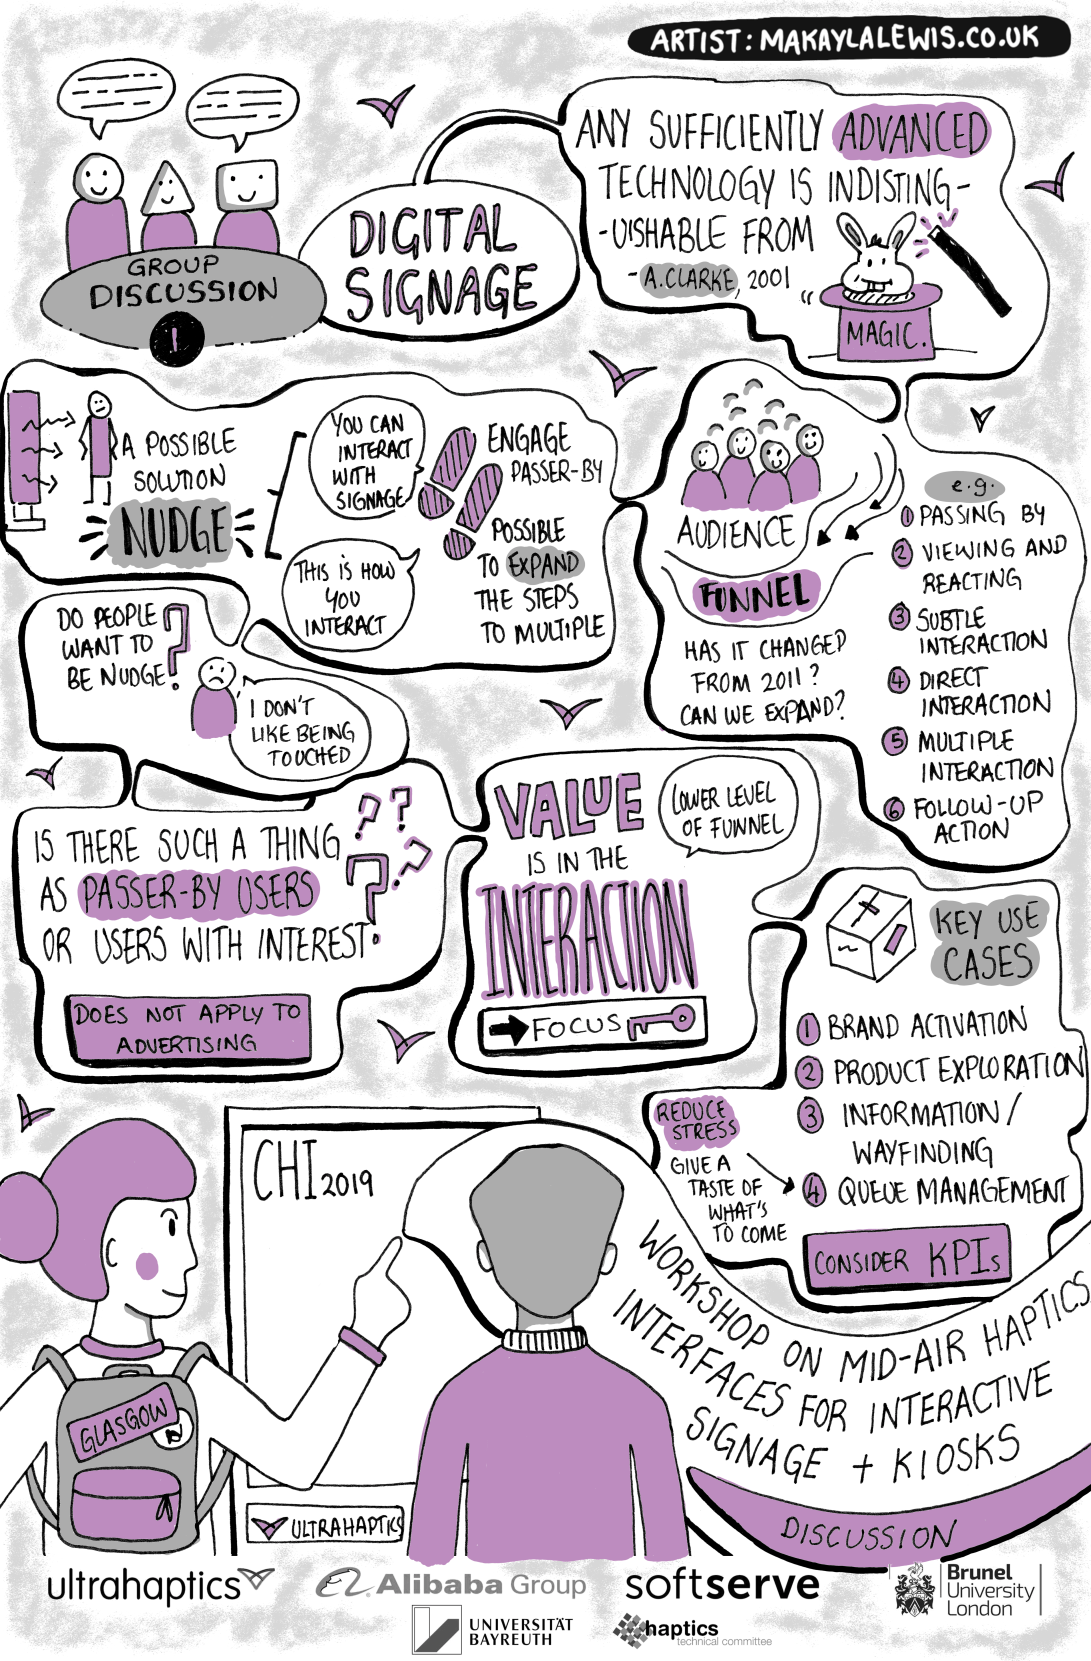 ARTIST: MAKAYLALEWIS.CO.UK
GROUP
DISCUSSION
1
DIGITAL
SIGNAGE
ANY SUFFICIENTLY ADVANCED
TECHNOLOGY IS INDISTING-
-UISHABLE FROM
- A.CLARKE, 2001
"
MAGIC.
A POSSIBLE
SOLUTION
NUDGE
YOU CAN
INTERACT
WITH
SIGNAGE
THIS IS HOW
YOU
INTERACT
ENGAGE
PASSER-BY
POSSIBLE
TO EXPAND
THE STEPS
TO MULTIPLE
AUDIENCE
FUNNEL
HAS IT CHANGED
FROM 2011?
CAN WE EXPAND?
e.g.
1 PASSING BY
2 VIEWING AND
REACTING
3 SUBTLE
INTERACTION
4 DIRECT
INTERACTION
5 MULTIPLE
INTERACTION
6 FOLLOW-UP
ACTION
DO PEOPLE
WANT TO
BE NUDGE?
I DON'T
LIKE BEING
TOUCHED
IS THERE SUCH A THING
AS PASSER-BY USERS
OR USERS WITH INTEREST
? ? ? ?
DOES NOT APPLY TO
ADVERTISING
VALUE
IS IN THE
INTERACTION
FOCUS
LOWER LEVEL
OF FUNNEL
KEY USE
CASES
1 BRAND ACTIVATION
2 PRODUCT EXPLORATION
3 INFORMATION/
WAYFINDING
4 QUEUE MANAGEMENT
REDUCE
STRESS
GIVE A
TASTE OF
WHAT'S
TO COME
CONSIDER KPIs
CHI 2019
WORKSHOP ON MID-AIR HAPTICS
INTERFACES FOR INTERACTIVE
SIGNAGE + KIOSKS
DISCUSSION
GLASGOW
ULTRAHAPTICS
ultrahaptics
Alibaba Group
softserve
Brunel
University
London
UNIVERSITÄT
BAYREUTH
haptics
technical committee